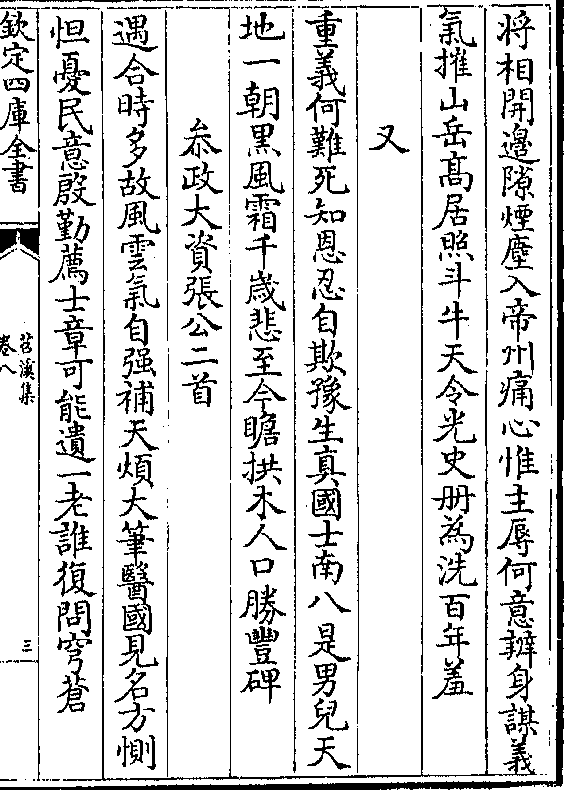 将相開邊隙煙塵入帝州痛心惟主辱何意辦身謀義
氣摧山岳髙居照斗牛天令光史册為洗百年羞
又
重義何難死知恩忍自欺豫生真國士南八是男兒天
地一朝黑風霜千歲悲至今瞻拱木人口勝豐碑
叅政大資張公二首
遇合時多故風雲氣自强補天煩大筆醫國見名方惻
怛憂民意殷勤薦士章可能遺一老誰復問穹蒼
欽定四庫全書
苕溪集
卷八
三